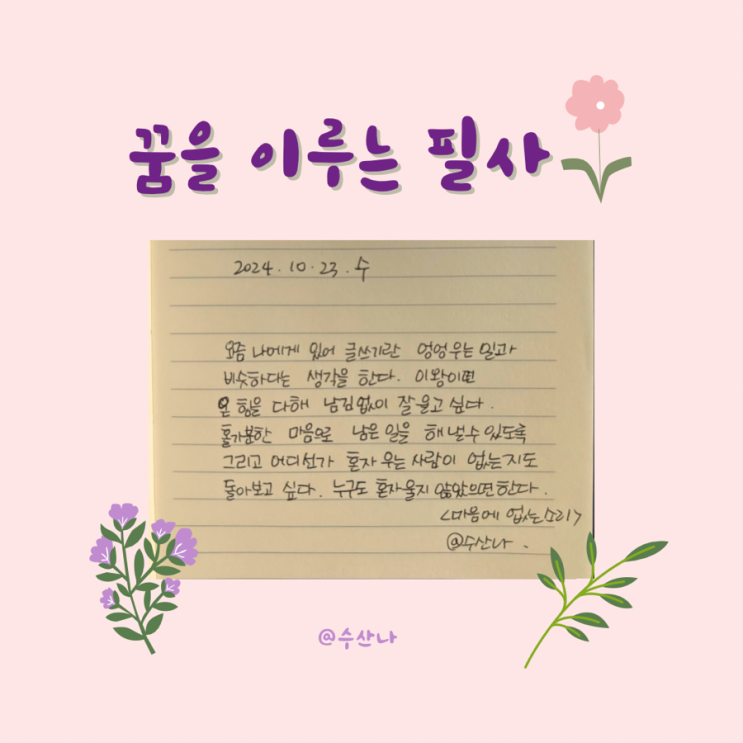 꿈을 이루는 필사
2024.10.23.수
요즘 나에게 있어 글쓰기란 엉엉 우는 일과
비슷하다는 생각을 한다. 이왕이면
온 힘을 다해 남김없이 잘 울고 싶다.
홀가분한 마음으로 남은 일을 해낼 수 있도록
그리고 어디선가 혼자 우는 사람이 없는지도
돌아보고 싶다. 누구도 혼자 울지 않았으면 한다.
<마음에 없는 소리>
@수산나.
@수산나